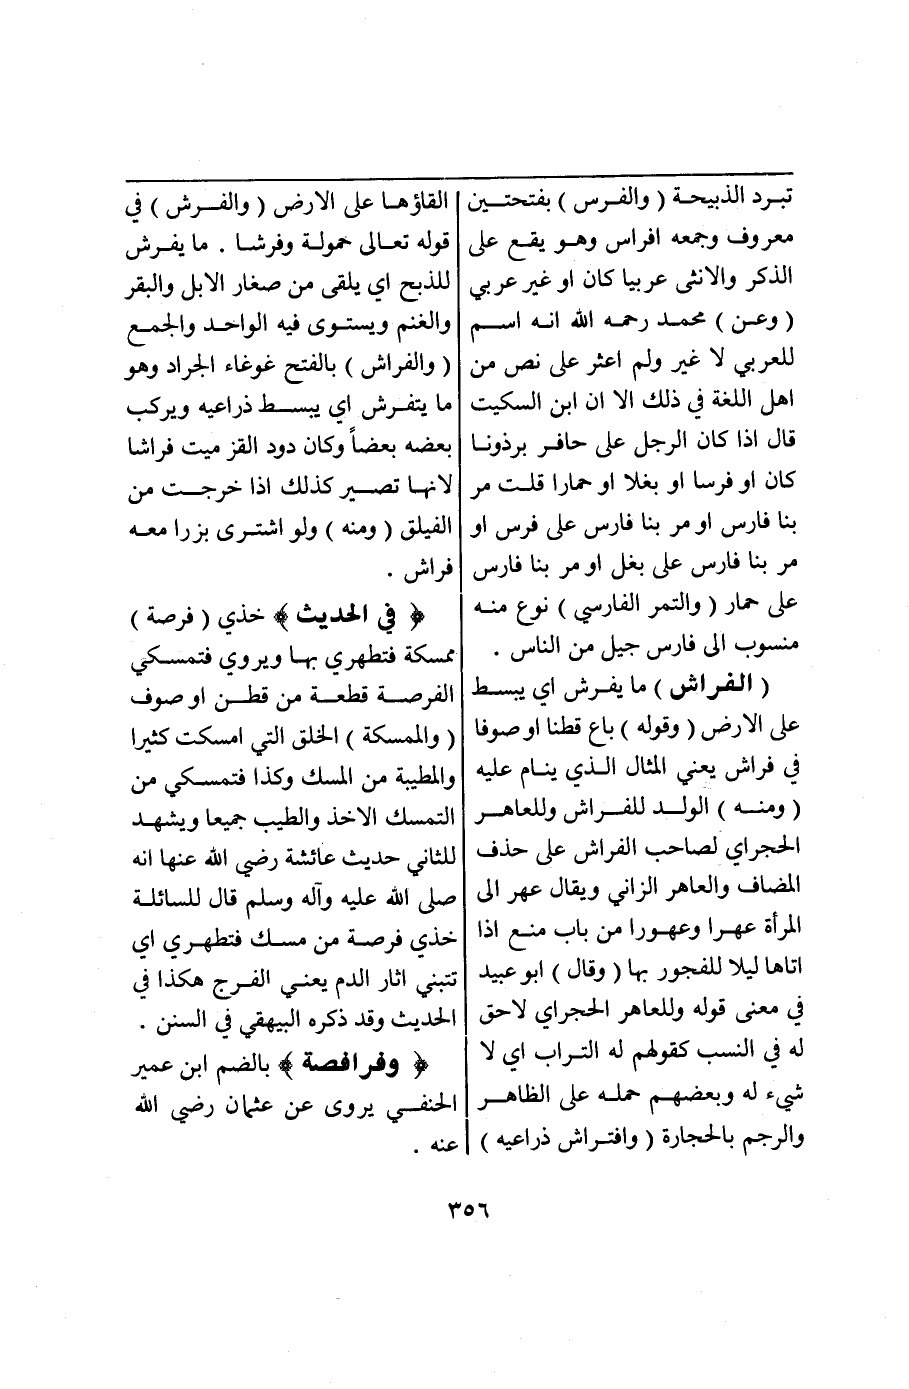 تبرد الذبيحة ( والفرس ) بفتحتين
معروف وجمعه افراس وهو يقع على
الذكر والانثى عربيا كان او غير عربي
( وعن ) محمد رحمه الله انه اسم
للعربي لا غير ولم اعثر على نص من
اهل اللغة في ذلك الا ان ابن السكيت
قال اذا كان الرجل على حافر برذونا
كان او فرسا او بغلا او حمارا قلت مر
بنا فارس او مر بنا فارس على فرس او
مر بنا فارس على بغل او مر بنا فارس
على حمار ( والتمر الفارسي ) نوع منه
منسوب الى فارس جيل من الناس .
( الفراش ) ما يفرش اي يبسط
على الارض ( وقوله ) باع قطنا او صوفا
في فراش يعني المثال الذي ينام عليه
( ومنه ) الولد للفراش وللعاهر
الحجراي لصاحب الفراش على حذف
المضاف والعاهر الزاني ويقال عهر الى
المرأة عهرا وعهورا من باب منع اذا
اتاها ليلا للفجور بها ( وقال ) ابو عبيد
في معنى قوله وللعاهر الحجراي لاحق
له في النسب كقولهم له التراب اي لا
شيء له وبعضهم حمله على الظاهر
والرجم بالحجارة ( وافتراش ذراعيه )
القاؤها على الارض ( والفرش ) في
قوله تعالى حمولة وفرشا . ما يفرش
للذبح اي يلقى من صغار الابل والبقر
والغنم ويستوى فيه الواحد والجمع
( والفراش ) بالفتح غوغاء الجراد وهو
ما يتفرش اي يبسط ذراعيه ويركب
بعضه بعضاً وكان دود القز ميت فراشا
لانها تصير كذلك اذا خرجت من
الفيلق ( ومنه ) ولو اشترى بزرا معه
فراش .
﴿ في الحديث ﴾ خذي ( فرصة )
ممسكة فتطهري بها ويروي فتمسكي
الفرصة قطعة من قطن او صوف
( والممسكة ) الخلق التي امسكت كثيرا
والمطيبة من المسك وكذا فتمسكي من
التمسك الاخذ والطيب جميعا ويشهد
للثاني حديث عائشة رضي الله عنها انه
صلى الله عليه وآله وسلم قال للسائلة
خذي فرصة من مسك فتطهري اي
تتبني اثار الدم يعني الفرج هكذا في
الحديث وقد ذكره البيهقي في السنن .
﴿ وفرافصة ﴾ بالضم ابن عمير
الحنفي يروى عن عثمان رضي الله
عنه .
٣٥٦